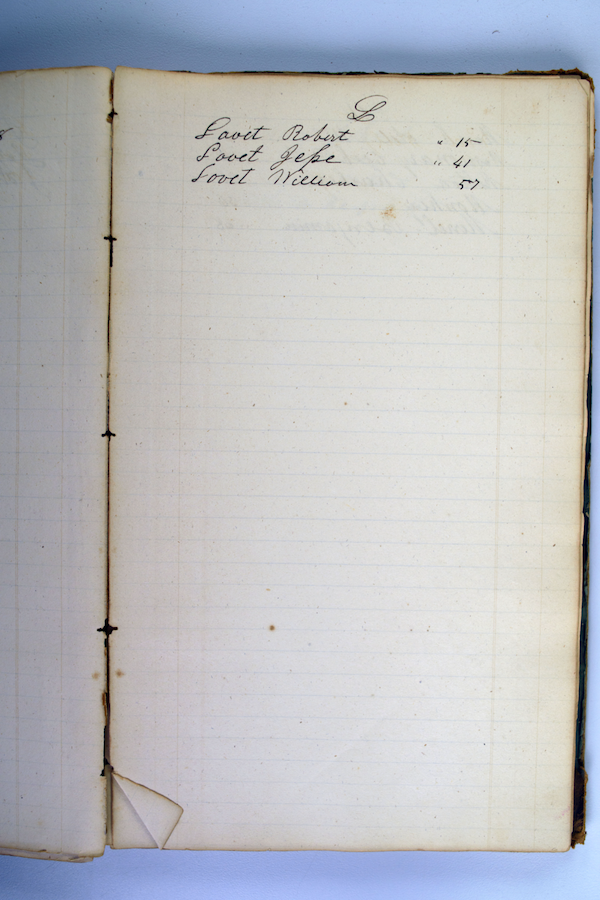 L
Lovet Robert " 15
Lovet Jesse " 41
Lovet William 57